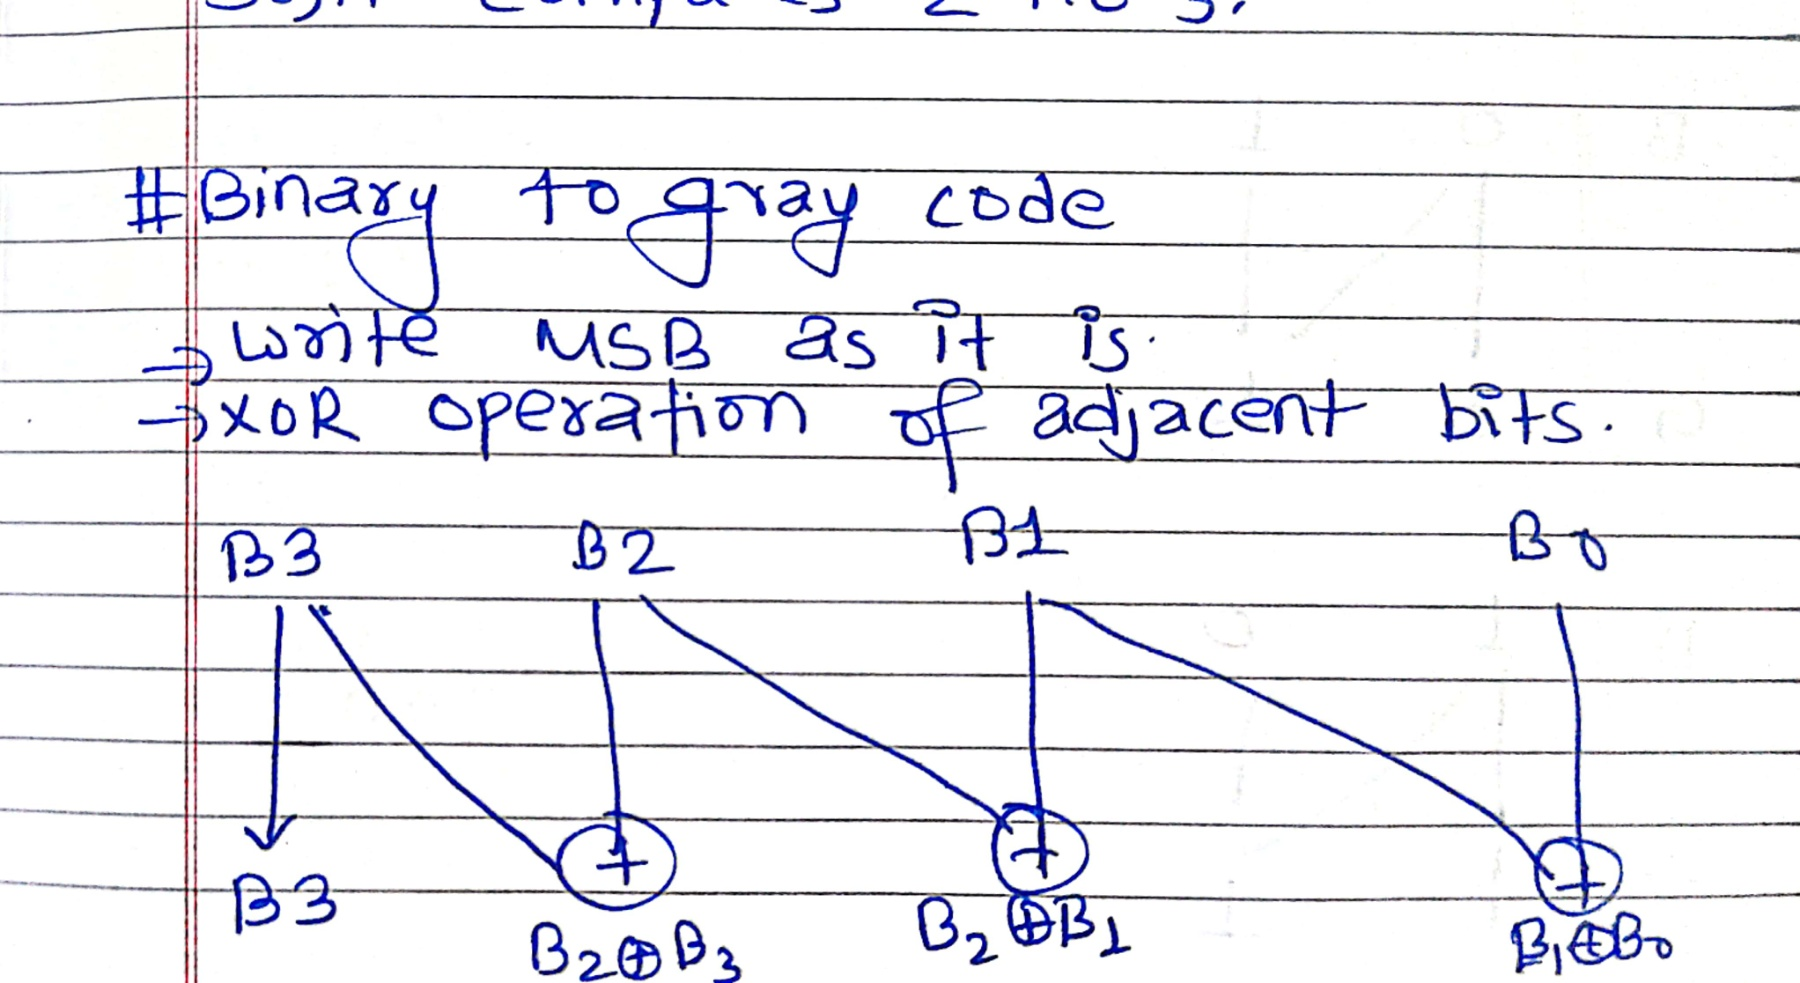 # Binary to gray code
→ write MSB as it is.
→ XOR operation of adjacent bits.
B3 B2 B1 B0
B3 B2⊕B3 B2⊕B1 B1⊕B0